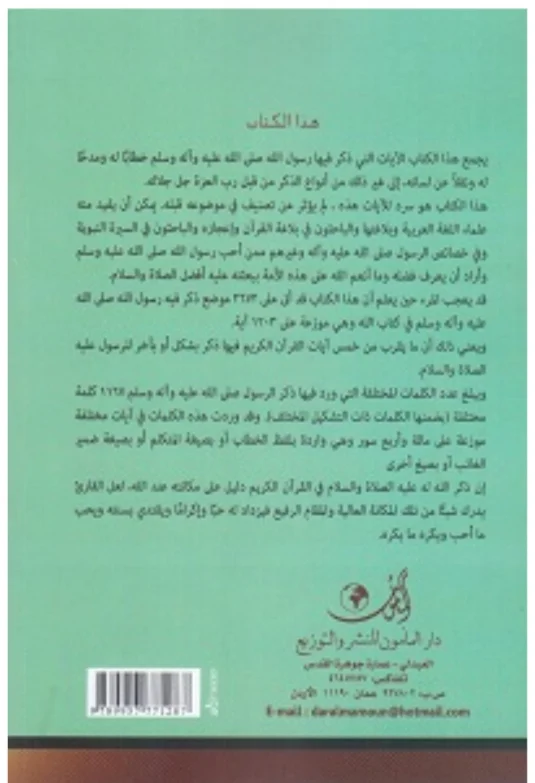 هذا الكتاب
يجمع هذا الكتاب الآيات التي ذكر فيها رسول الله صلى الله عليه وآله وسلم خطابًا له ومدحًا
له ونقلاً عن لسانه، إلى غير ذلك من أنواع الذكر من قبل رب العزة جل جلاله.
هذا الكتاب هو سرد للآيات هذه، لم يؤثر عن تصنيف في موضوعه قبله. يمكن أن يفيد منه
علماء اللغة العربية وبلاغتها والباحثون في بلاغة القرآن وإعجازه والباحثون في السيرة النبوية
وفي خصائص الرسول صلى الله عليه وآله وغيرهم ممن أحب رسول الله صلى الله عليه وسلم
وأراد أن يعرف فضله وما أنعم الله على هذه الأمة ببعثته عليه أفضل الصلاة والسلام.
قد يعجب المرء حين يعلم أن هذا الكتاب قد أتى على موضع ذكر فيه رسول الله صلى الله
عليه وآله وسلم في كتاب الله وهي موزعة على آية.
ويعني ذلك أن ما يقرب من خمس آيات القرآن الكريم فيها ذكر بشكل أو بآخر للرسول عليه
الصلاة والسلام.
ويبلغ عدد الكلمات المختلفة التي ورد فيها ذكر الرسول صلى الله عليه وآله وسلم كلمة
مختلفة (بضمنها الكلمات ذات التشكيل المختلف). وقد وردت هذه الكلمات في آيات مختلفة
موزعة على مائة وأربع سور وهي واردة بلفظ الخطاب أو بصيغة المتكلم أو بصيغة ضمير
الغائب أو بصيغ أخرى
إن ذكر الله له عليه الصلاة والسلام في القرآن الكريم دليل على مكانته عند الله، لعل القارئ
يدرك شيئًا من تلك المكانة العالية والمقام الرفيع فيزداد له حبًا وإكرامًا ويقتدي بسنته ويحب
ما أحب ويكره ما يكره.
دار المأمون للنشر والتوزيع
العبدلي - عمارة جوهرة القدس
تلفاكس:
ص.ب: عمان ١١١٩٠ الأردن
E-mail : daralmamoun@hotmail.com